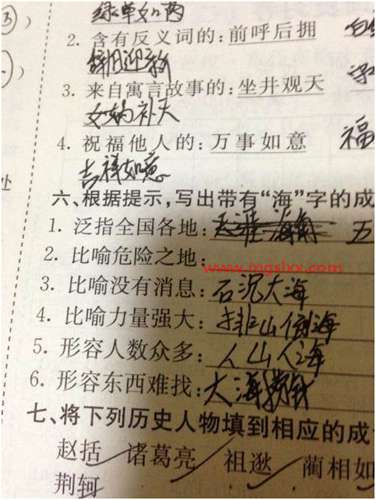 2. 含有反义词的:前呼后拥
辞旧迎新
3. 来自寓言故事的:坐井观天
女娲补天
4. 祝福他人的:万事如意 福
吉祥如意
六、根据提示,写出带有“海”字的成
1. 泛指全国各地: 海角 五
2. 比喻危险之地:
www.mgslxx.com
3. 比喻没有消息:石沉大海
4. 比喻力量强大:排山倒海
5. 形容人数众多:人山人海
6. 形容东西难找:大海捞针
七、将下列历史人物填到相应的成
赵括 诸葛亮 祖逖 蔺相如
荆轲